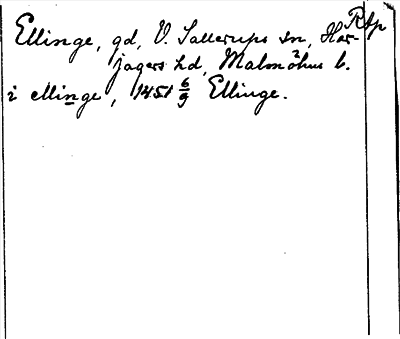 RAp
Ellinge, gd, V. Sallerups sn, Har-
jagers hd, Malmöhus l.
i ellinge, 1451 6/9 Ellinge.